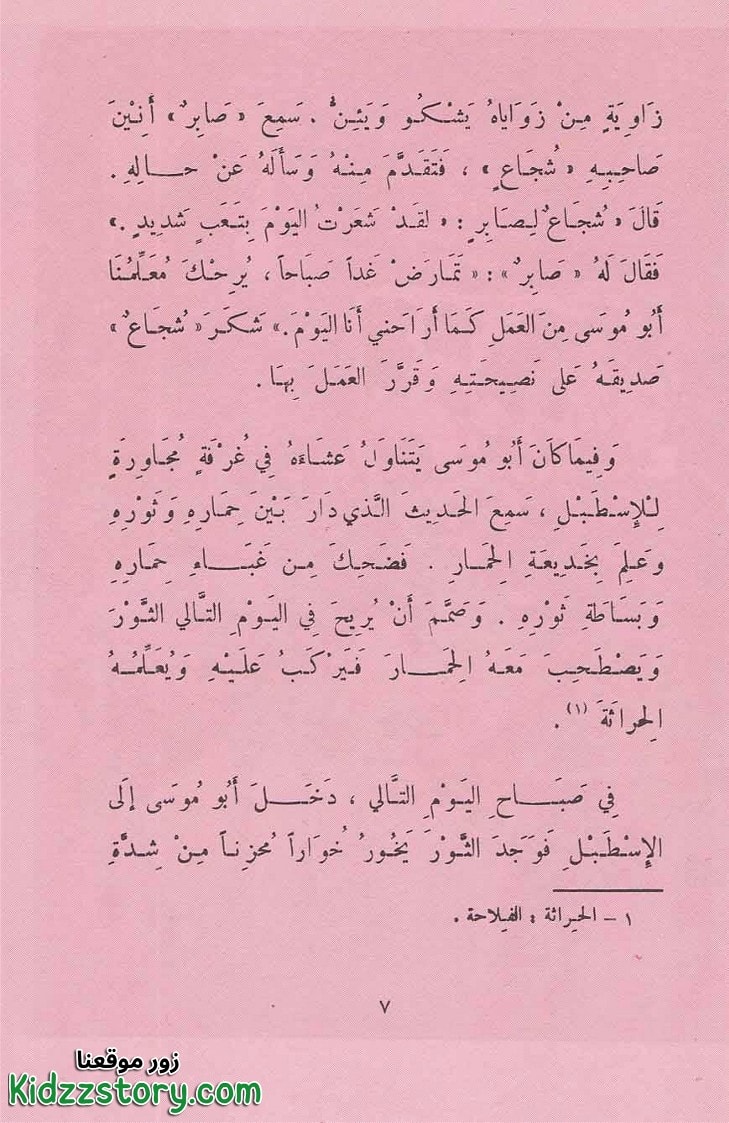 زَاوِيَةٍ مِنْ زَوَايَاهُ يَشْكُو وَيَئِنُّ . سَمِعَ « صَابِرٌ » أَنِيْنَ
صَاحِبِهِ « شُجَاعٍ » ، فَتَقَدَّمَ مِنْهُ وَسَأَلَهُ عَنْ حَالِهِ .
قَالَ « شُجَاعٌ لِصَابِرٍ : « لَقَدْ شَعَرْتُ اليَوْمَ بِتَعَبٍ شَدِيدٍ . »
فَقَالَ لَهُ « صَابِرٌ » : « تَمَارَضْ غَداً صَبَاحاً ، يُرِحْكَ مُعَلِّمُنَا
أَبُو مُوسَى مِنَ العَمَلِ كَمَا أَرَاحَنِي أَنَا اليَوْمَ . » شَكَرَ « شُجَاعٌ »
صَدِيقَهُ عَلَى نَصِيحَتِهِ وَقَرَّرَ العَمَلَ بِهَا .
وَفِيمَا كَانَ أَبُو مُوسَى يَتَنَاوَلُ عَشَاءَهُ فِي غُرْفَةٍ مُجَاوِرَةٍ
لِلْإِسْطَبْلِ ، سَمِعَ الحَدِيثَ الَّذِي دَارَ بَيْنَ حِمَارِهِ وَثَوْرِهِ
وَعَلِمَ بِخَدِيعَةِ الحِمَارِ . فَضَحِكَ مِن غَبَاءِ حِمَارِهِ
وَبَسَاطَةِ ثَوْرِهِ . وَصَمَّمَ أَنْ يُرِيحَ فِي اليَوْمِ التَّالِي الثَّوْرَ
وَيَصْطَحِبَ مَعَهُ الحِمَارَ فَيَرْكَبُ عَلَيْهِ وَيُعَلِّمُهُ
الحِرَاثَةَ (١) .
فِي صَبَاحِ اليَوْمِ التَّالِي ، دَخَلَ أَبُو مُوسَى إِلَى
الإِسْطَبْلِ فَوَجَدَ الثَّوْرَ يَخُورُ خُوَاراً مُحْزِناً مِنْ شِدَّةِ
١ - الحِراثة : الفِلاحة .
٧
زور موقعنا
Kidzzstory.com